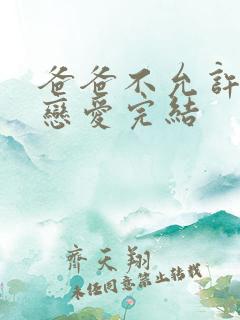 爸爸不允許
戀愛完結
齊天翔
未經同意禁止转载